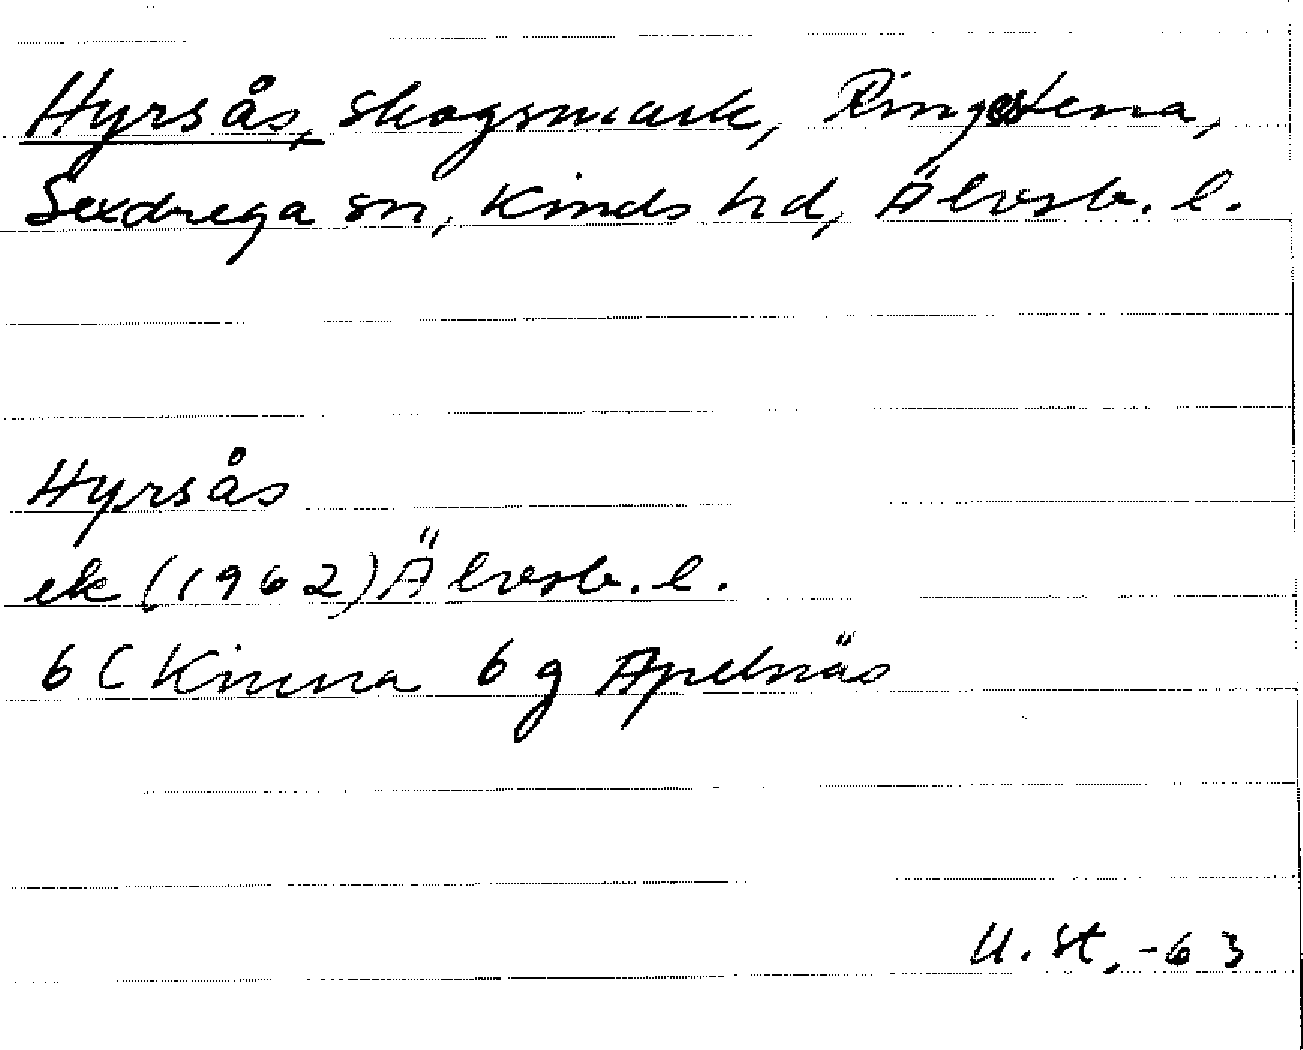 Hyrsås, skogsmark, Ringestena,
Sexdrega sn, Kinds hd, Älvsb. l.
Hyrsås
ek (1962) Älvsb. l.
6 C Kinna 6 g Apelnäs
U. St. -63